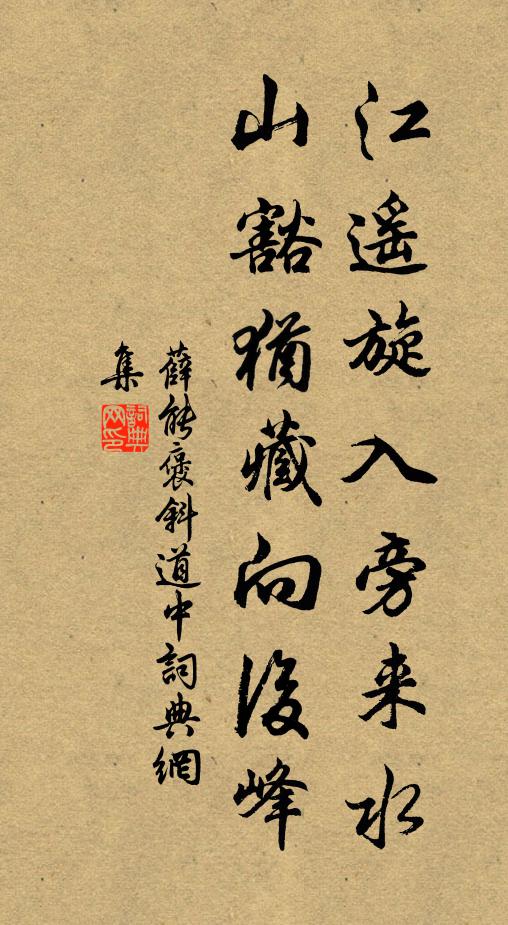 江遥旋入旁来水
山豁猶藏向後峰
薛能褒斜道中詞典網
集
詞典网印